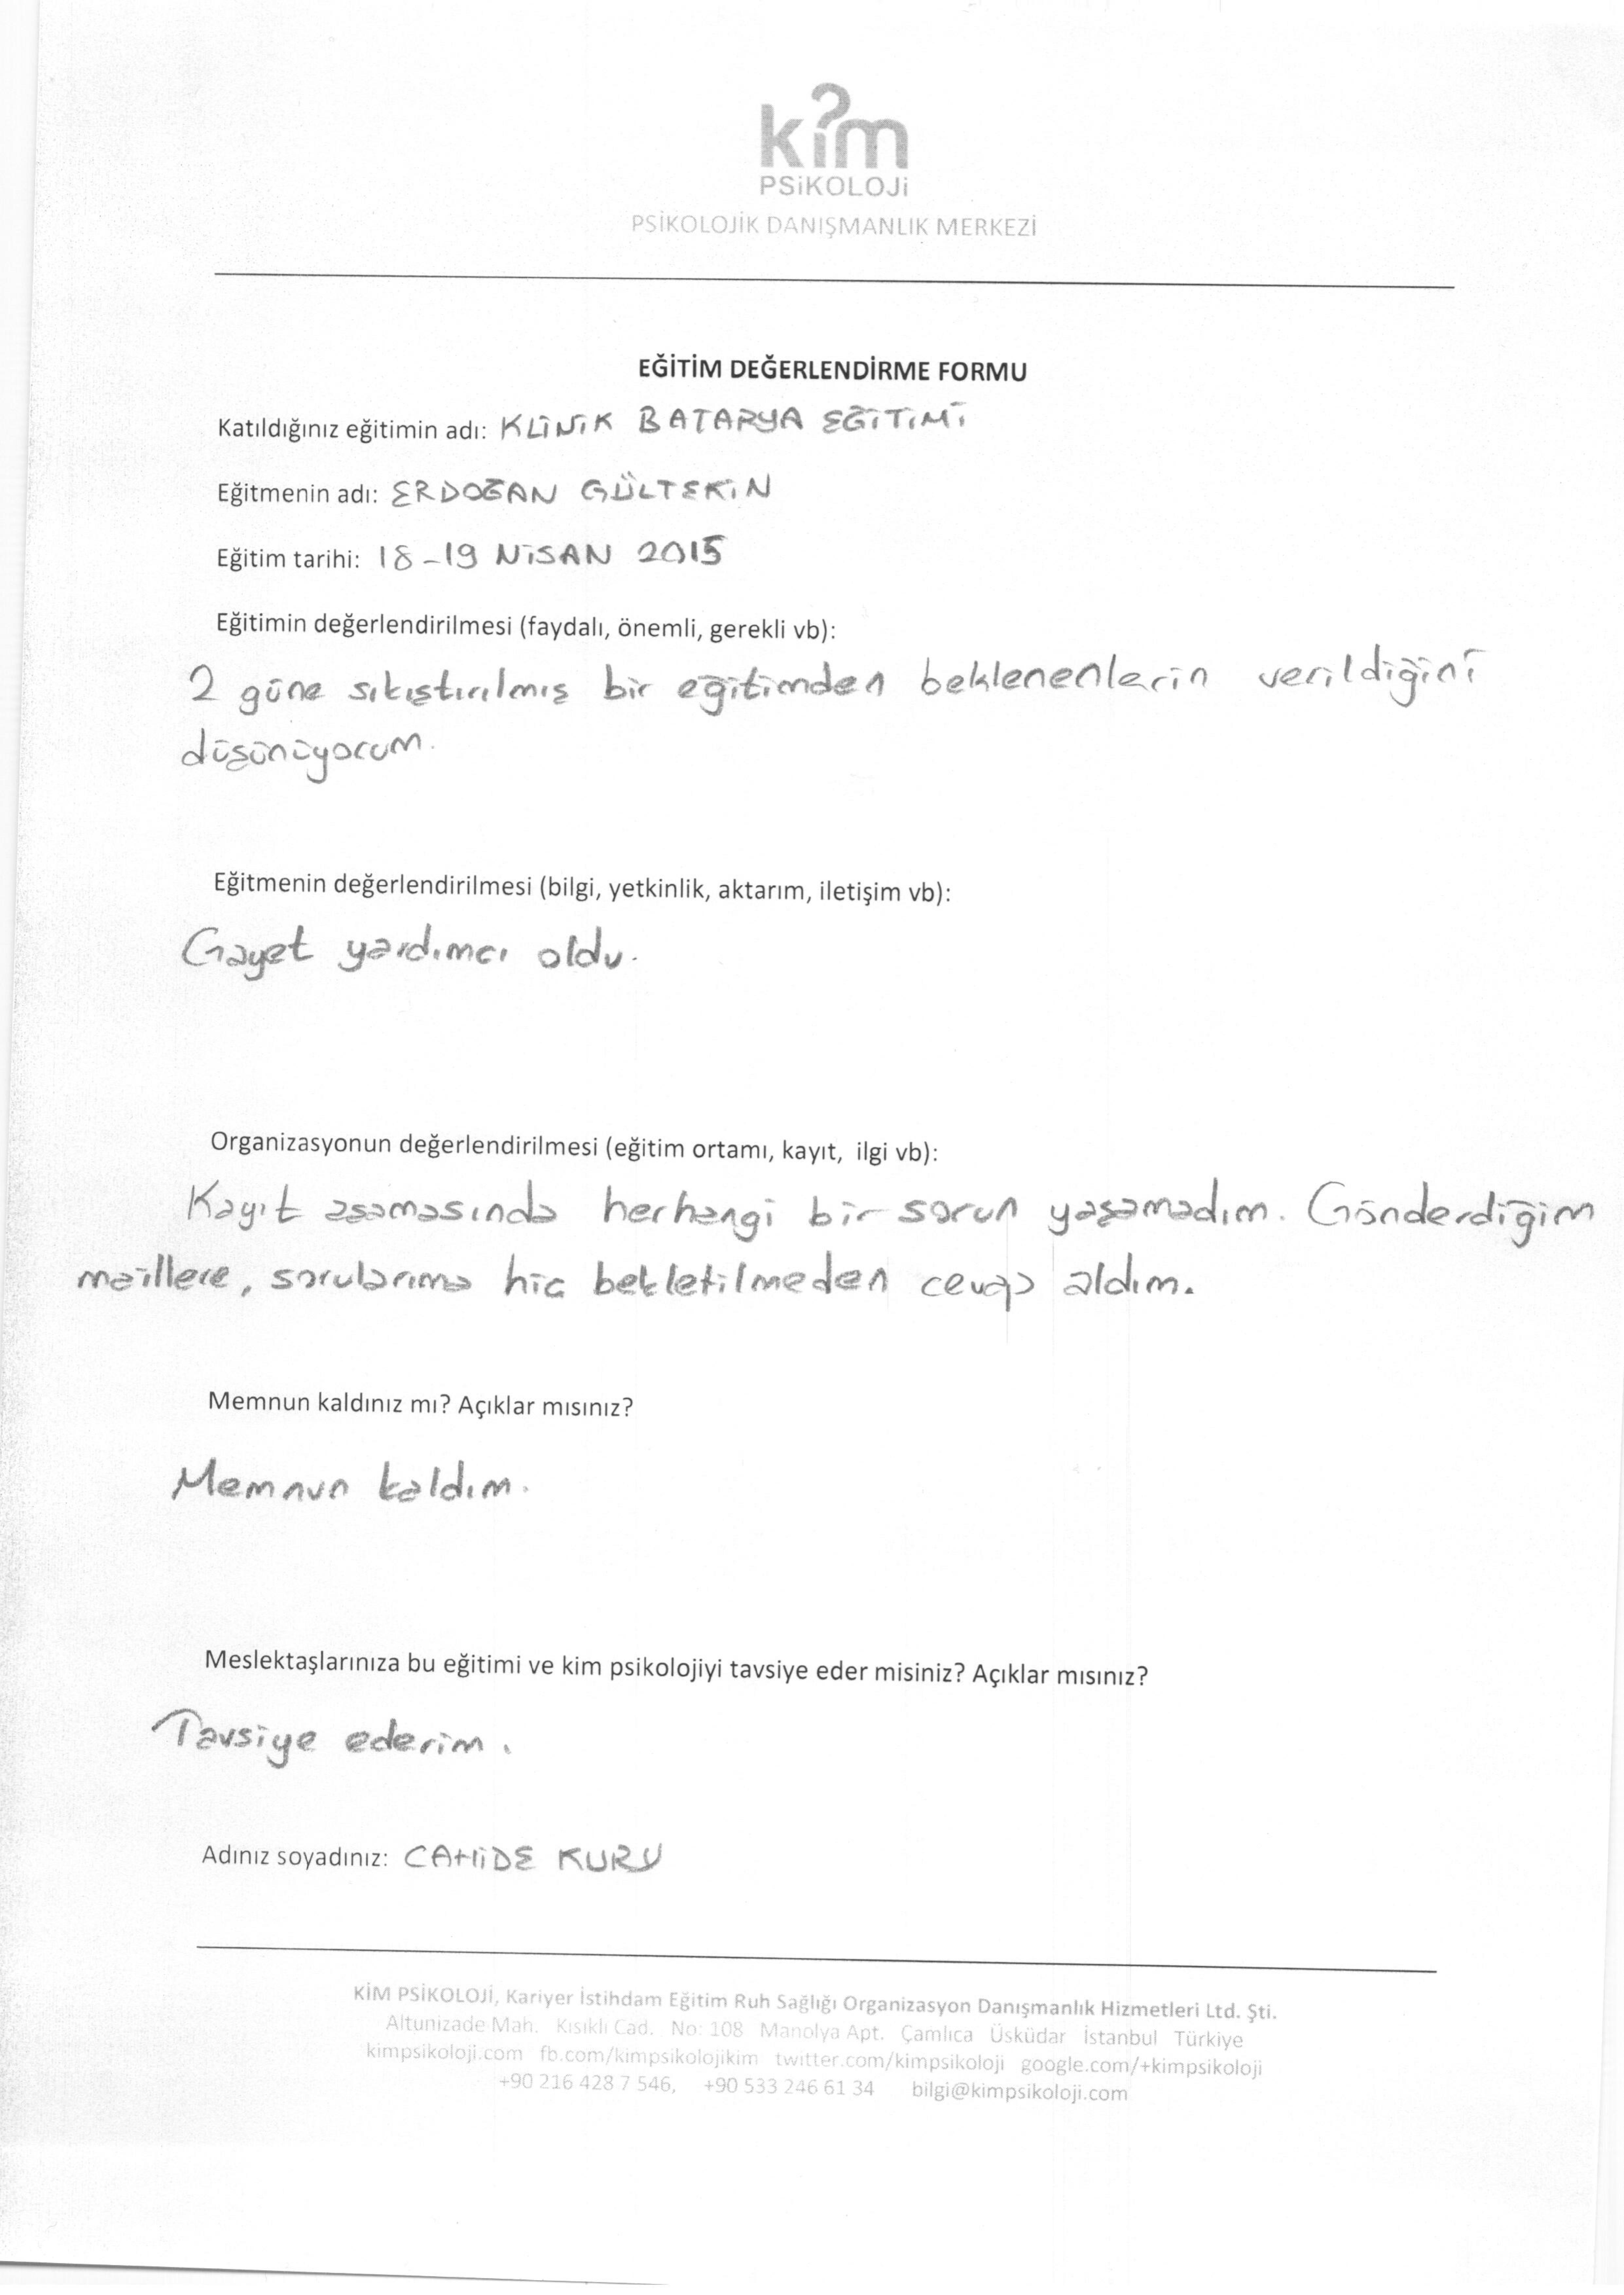 kim
PSİKOLOJİ
PSİKOLOJİK DANIŞMANLIK MERKEZİ
EĞİTİM DEĞERLENDİRME FORMU
Katıldığınız eğitimin adı: KLİNİK BATARYA EĞİTİMİ
Eğitmenin adı: ERDOĞAN GÜLTEKİN
Eğitim tarihi: 18-19 NİSAN 2015
Eğitimin değerlendirilmesi (faydalı, önemli, gerekli vb):
2 güne sıkıştırılmış bir eğitimden beklenenlerin verildiğini
düşünüyorum.
Eğitmenin değerlendirilmesi (bilgi, yetkinlik, aktarım, iletişim vb):
Gayet yardımcı oldu.
Organizasyonun değerlendirilmesi (eğitim ortamı, kayıt, ilgi vb):
Kayıt aşamasında herhangi bir sorun yaşamadım. Gönderdiğim
maillere, sorularıma hiç bekletilmeden cevap aldım.
Memnun kaldınız mı? Açıklar mısınız?
Memnun kaldım.
Meslektaşlarınıza bu eğitimi ve kim psikolojiyi tavsiye eder misiniz? Açıklar mısınız?
Tavsiye ederim.
Adınız soyadınız: CAHİDE KURU
KİM PSİKOLOJİ, Kariyer İstihdam Eğitim Ruh Sağlığı Organizasyon Danışmanlık Hizmetleri Ltd. Şti.
Altunizade Mah. Kısıklı Cad. No: 108 Manolya Apt. Çamlıca Üsküdar İstanbul Türkiye
kimpsikoloji.com fb.com/kimpsikolojikim twitter.com/kimpsikoloji google.com/+kimpsikoloji
+90 216 428 7 546, +90 533 246 61 34 bilgi@kimpsikoloji.com